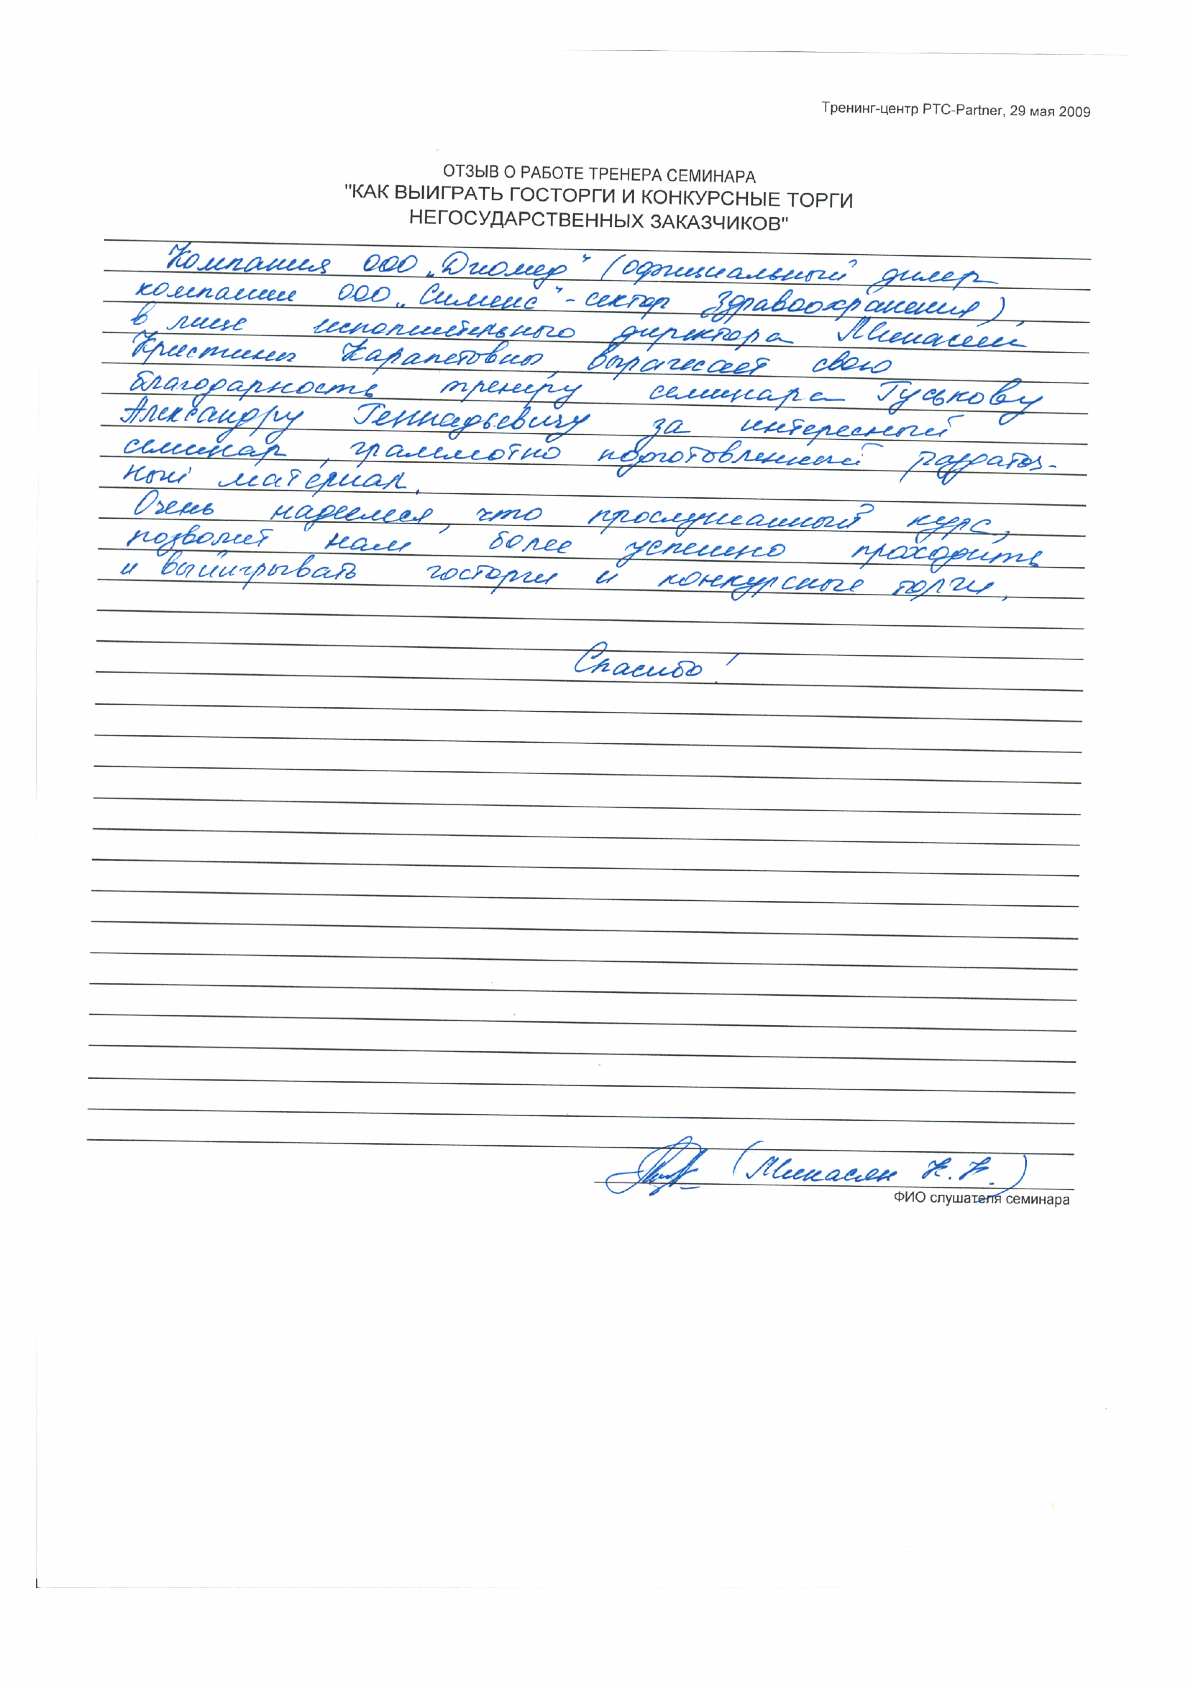 Тренинг-центр РТС-Partner, 29 мая 2009
ОТЗЫВ О РАБОТЕ ТРЕНЕРА СЕМИНАРА
"КАК ВЫИГРАТЬ ГОСТОРГИ И КОНКУРСНЫЕ ТОРГИ
НЕГОСУДАРСТВЕННЫХ ЗАКАЗЧИКОВ"
Компания ООО „Диомед" (официальный дилер
компании ООО „Сименс" - сектор Здравоохранения),
в лице исполнительного директора Минасян
Кристины Карапетовны, выражает свою
благодарность тренеру семинара Гуськову
Александру Геннадьевичу за интересный
семинар, грамотно подготовленный раздаточ-
ный материал.
Очень надеемся, что прослушанный курс,
позволит нам более успешно проходить
и выйигрывать госторги и конкурсные торги.
Спасибо!
(Минасян К.К.)
ФИО слушателя семинара